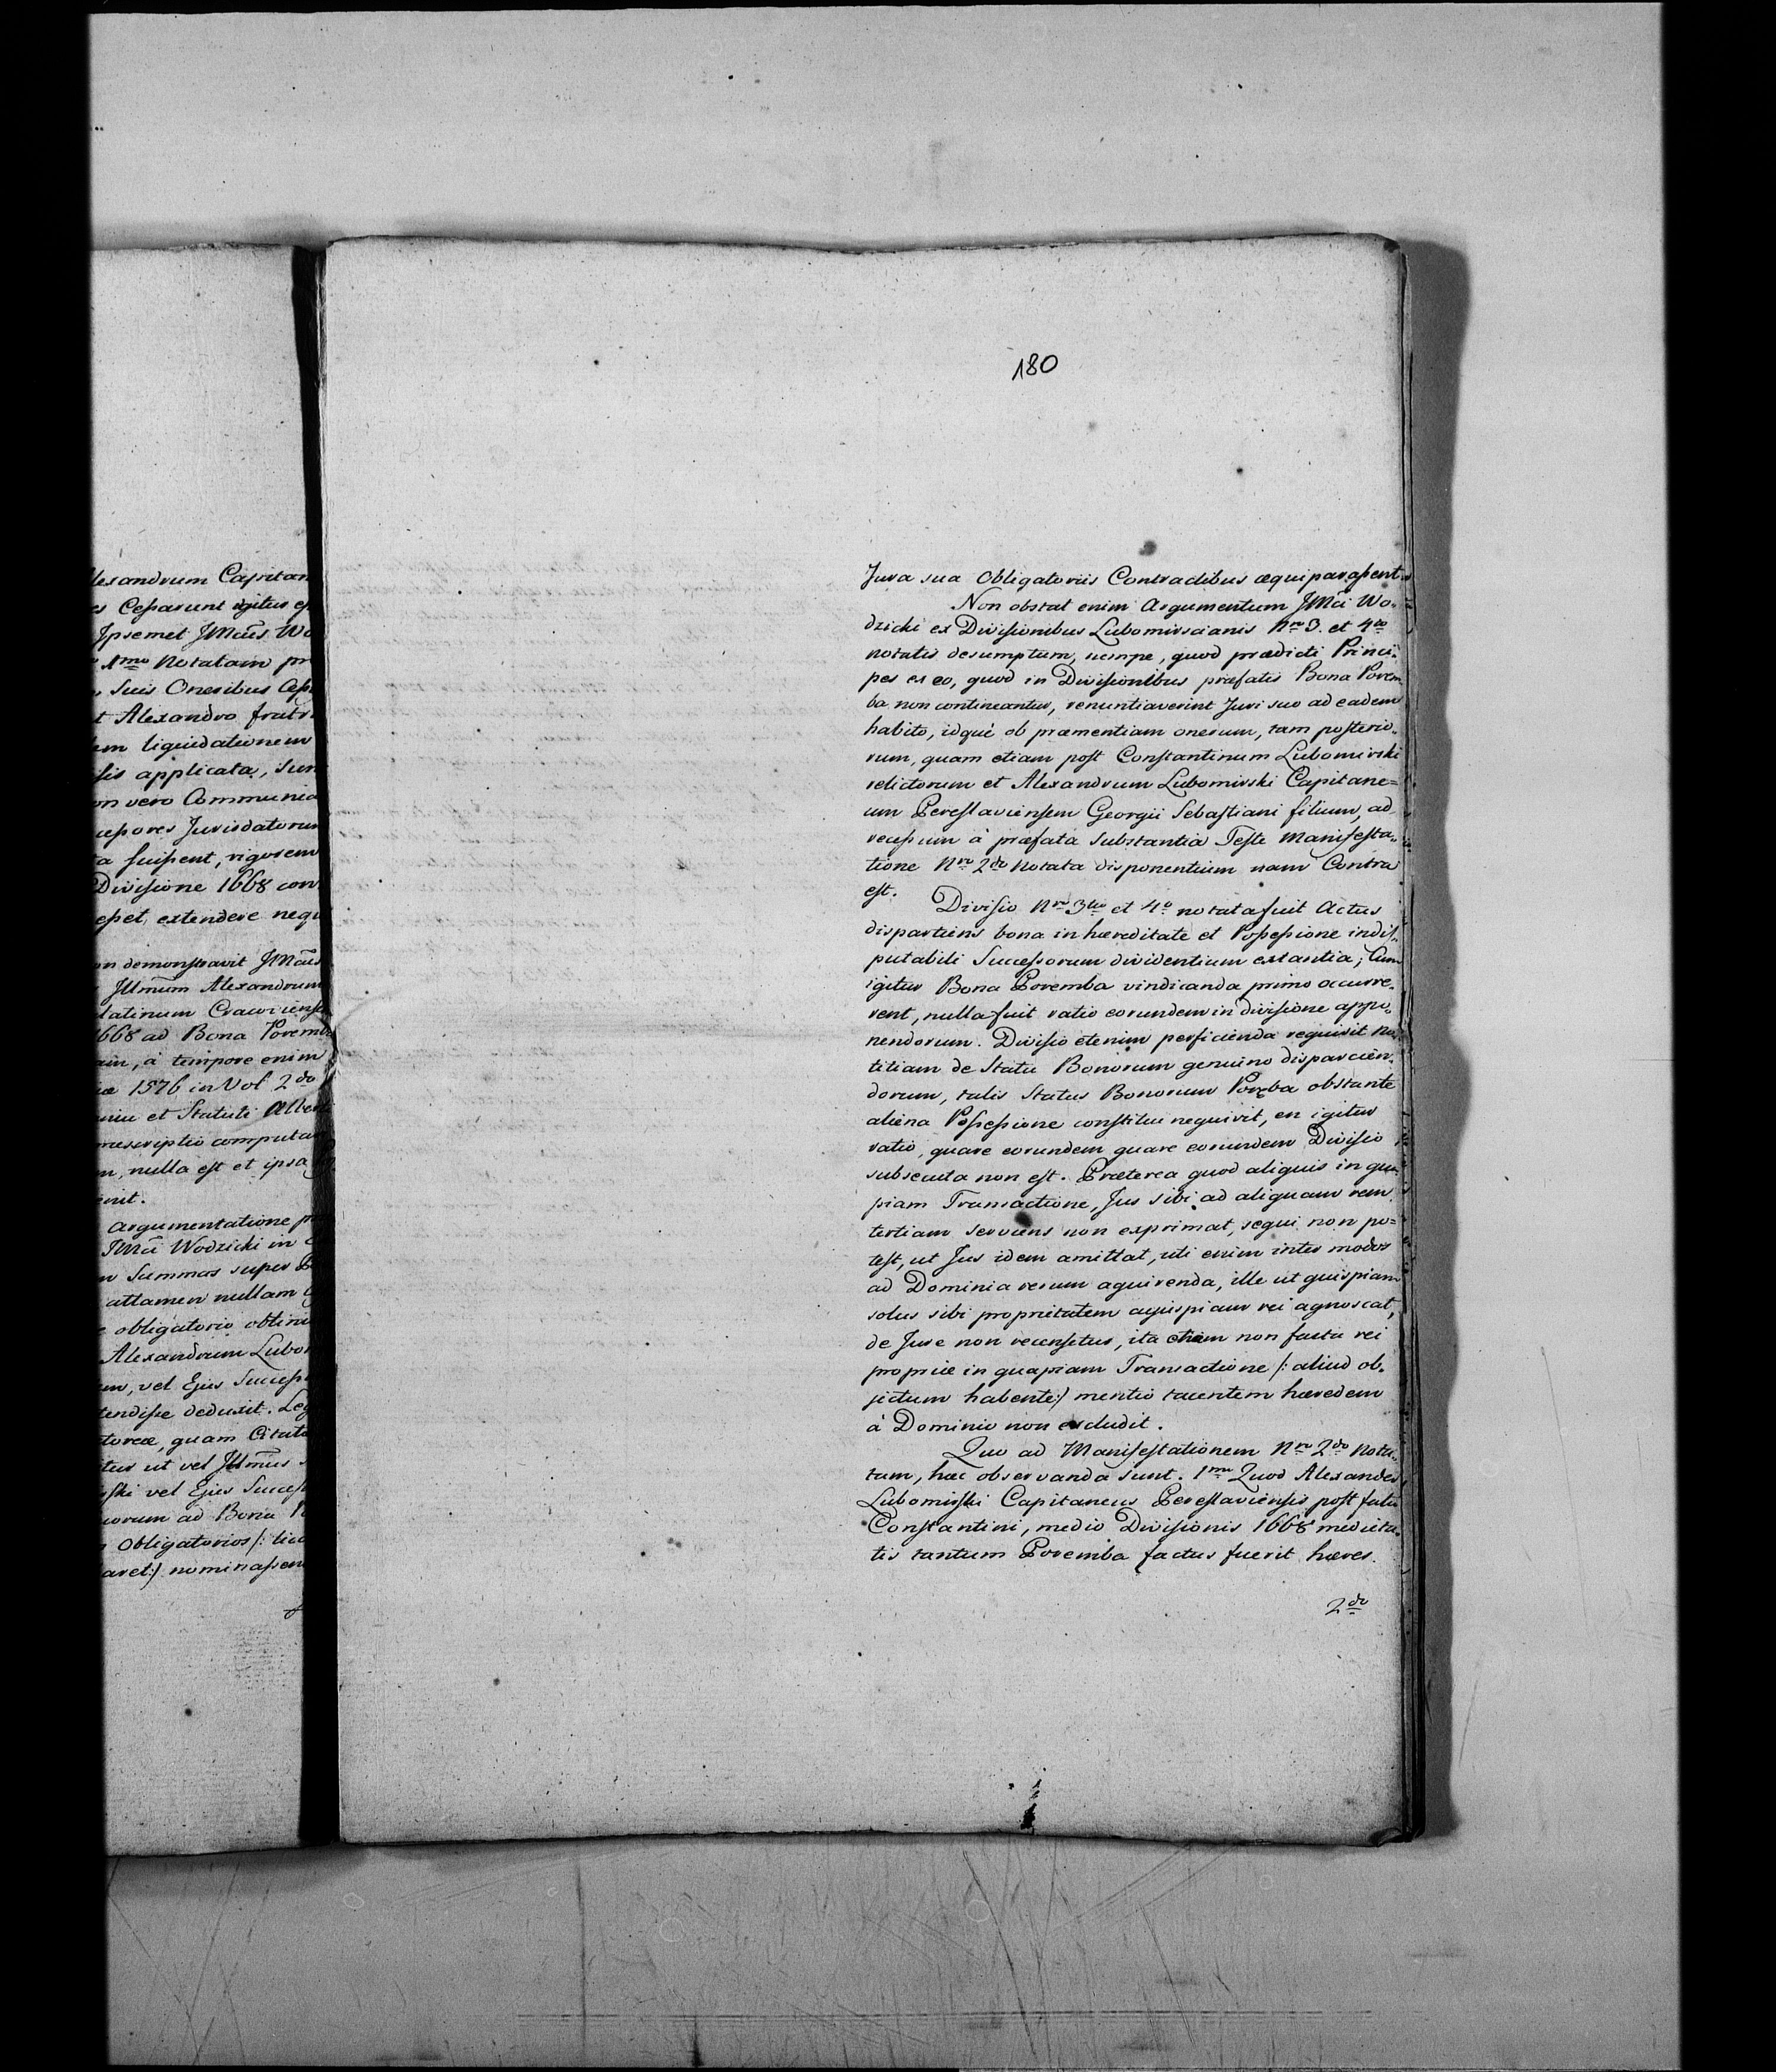 lexandrum Capitan
es Cessarunt igitur
Ipsemet JMaus Wo
1mo Notatam
Suis Oneribus Cess
t Alexandro fratr
em liquidationem
sis applicata, sum
on vero Communic
cessores Jurisdatorum
a fuissent, rigorem
Divisione 1668 con
esset, extendere nequ
on demonstravit JMaus
Jllmum Alexandrum
latinum Cracoviens
1668 ad Bona Poremb
am, à tempore enim
iæ 1576 in Vol 2do
et Statuti Albert
præscriptio computa
m, nulla est et ipsa
erit.
Argumentatione
JMci Wodzicki in
Summas super
attamen nullam
obligatorio obtinu
Alexandrum Lubo
um, vel Ejus Success
tendisse deduxit. Leg
toreæ, quam Citato
tur ut vel Jllmus
ski vel Ejus Success
orum ad Bona
Obligatorios /: lice
aret:/ nominassen
180
Jura sua Obligatoriis Contractibus æquiparassent
Non obstat enim Argumentum JMci Wo-
dzicki ex Divisionibus Lubomirscianis Nro 3. et 4to
notatis desumptum, nempe, quod prædicti Princi-
pes ex eo, quod in Divisionibus præfatis Bona Porem
ba non contineantur, renuntiaverint Juri suo ad eadem
habito, idquè ob præmentiam onerum, tam posterio-
rum, quam etiam post Constantinum Lubomirski
relictorum et Alexandrum Lubomirski Capitane=
um Pereslaviensem Georgii Sebastiani filium, ad
recessum à præfata Substantia Teste Manifesta-
tione Nro 2do Notata disponentium nam Contra
est.
Divisio Nro 3tio et 4o notata fuit Actus
dispartiens bona in hæreditate et Possessione indis-
putabili Successorum dividentium extantia; Cum
igitur Bona Poremba vindicanda primo occurre-
rent, nulla fuit ratio eorundem in divisione appo-
nendorum. Divisio etenim perficienda requisit No-
titiam de Statu Bonorum genuino disparcien-
dorum, talis Status Bonorum Poręba obstante
aliena Possessione constitui nequivit, en igitur
ratio, quare eorundem quare eorundem Divisio
subsecuta non est. Præterea quod aliquis in qu
piam Transactione, Jus sibi ad aliquam rem
tertiam serviens non exprimat, sequi non po=
test, ut Jus idem amittat, uti enim inter modos
ad Dominia rerum aquirenda, ille ut quispiam
solus sibi proprietatem cujuspiam rei agnoscat,
de Jure non recensetur, ita etiam non facta rei
propriæ in quapiam Transactione /: aliud ob-
jectum habente:/ mentio tacentem hæredem
à Dominio non excludit.
Quo ad Manifestationem Nro 2do Nota-
tam, hæc observanda sunt. 1mo Quod Alexander
Lubomirski Capitaneus Pereslaviensis post fata
Constantini, medio Divisionis 1668 medieta-
tis tantum Poremba factus fuerit hæres.
2do